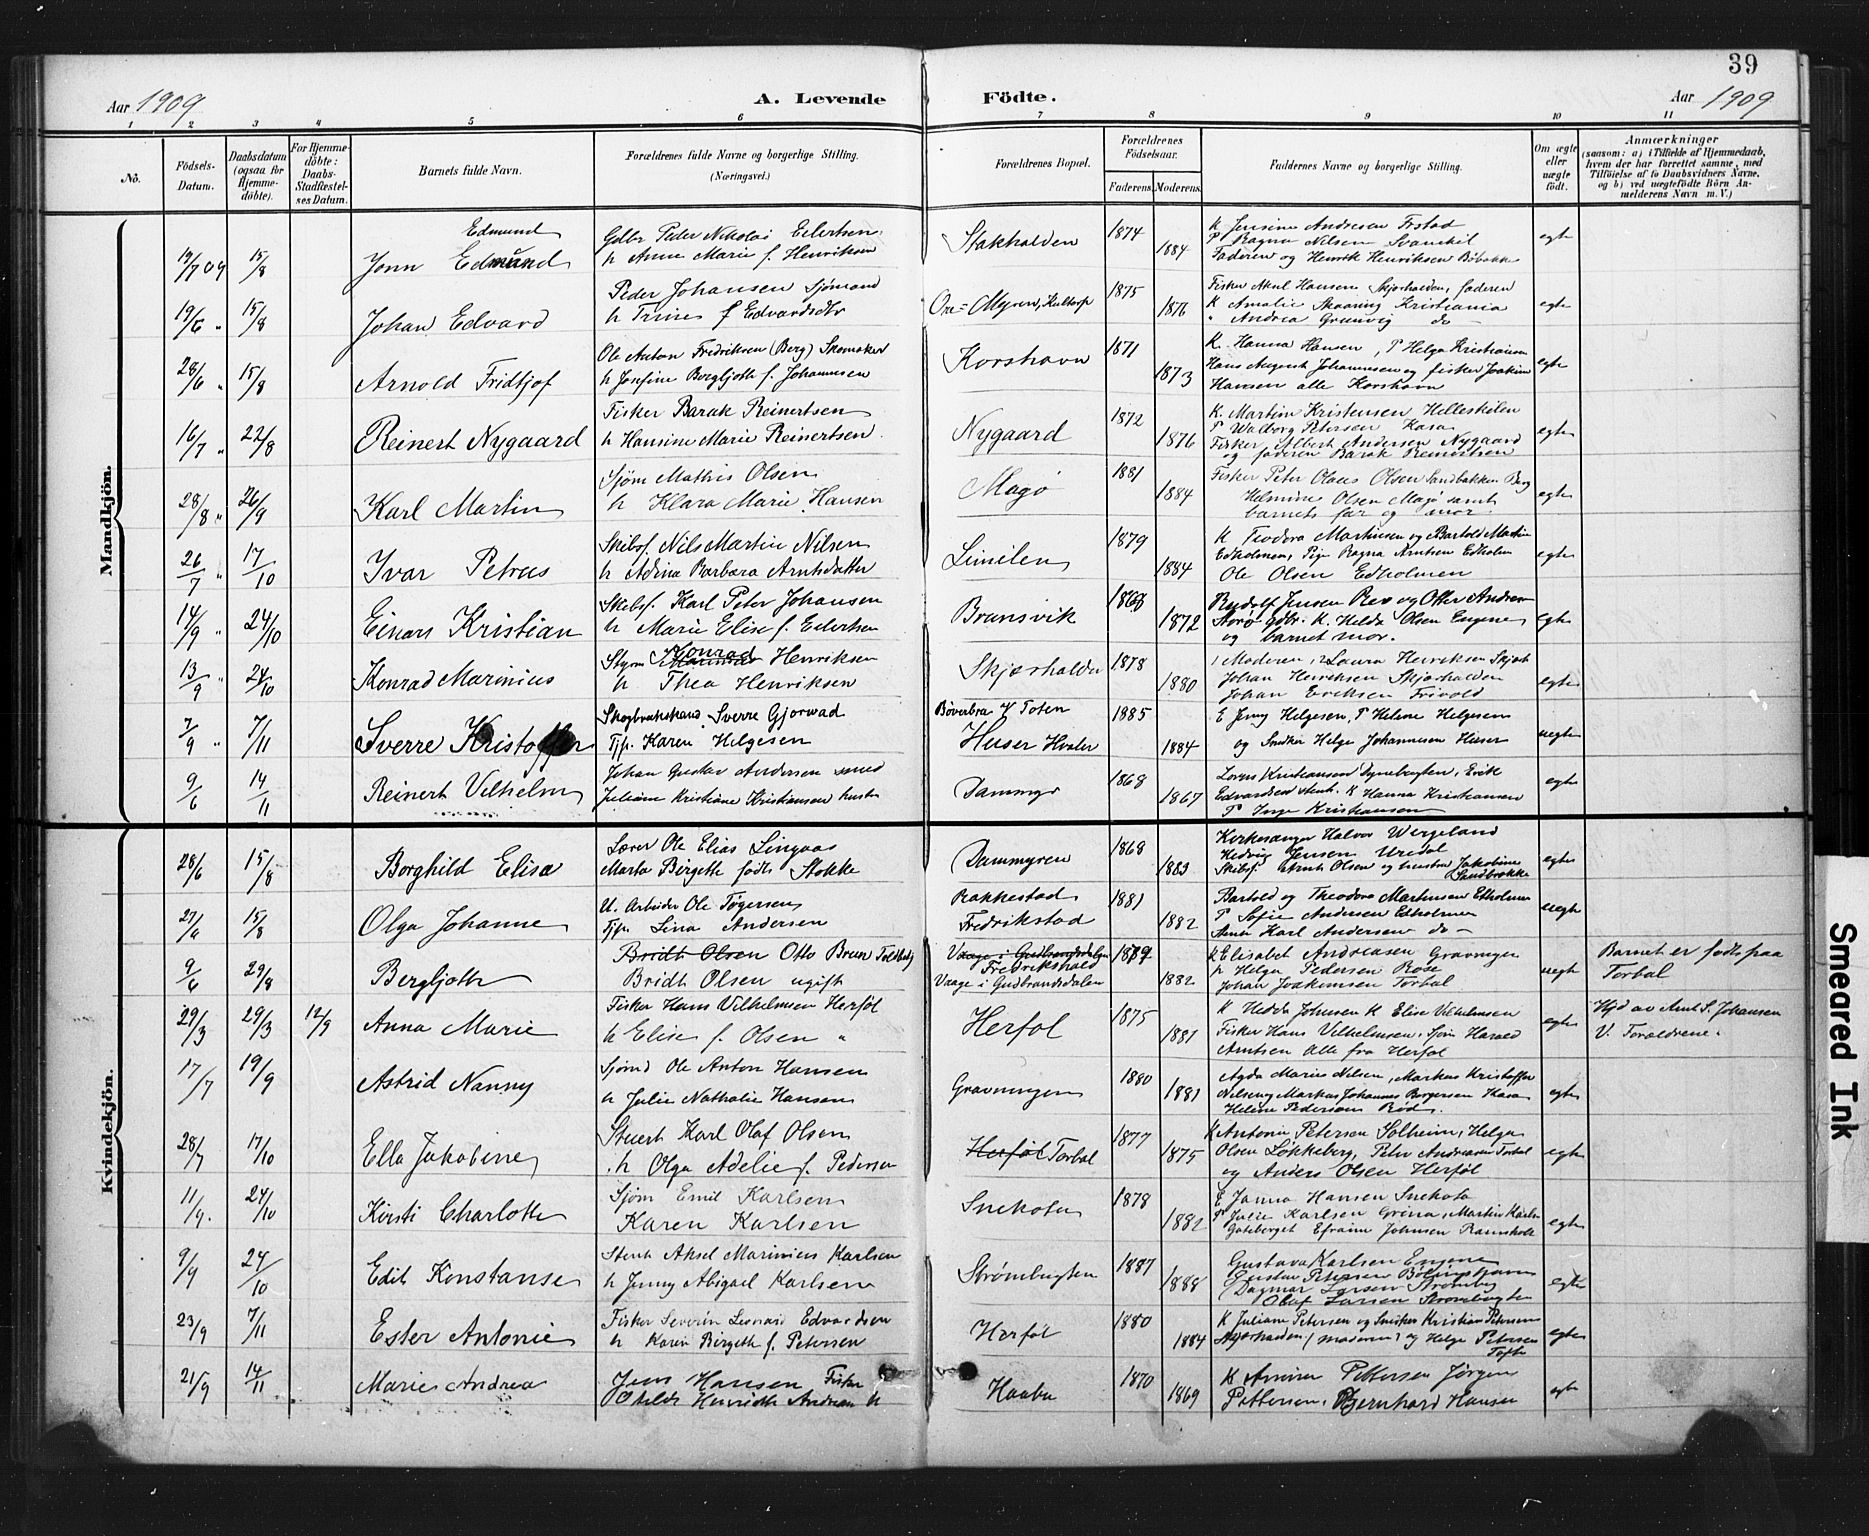 39
Aar 1909
A. Levende Födte.
Aar 1909
1 2 3 4 5 6 7 8 9 10 11
No.
Födsels-Datum.
Daabsdatum (ogsaa for Hjemme-döbte).
For Hjemme-döbte: Daabs-Stadfæstel-ses Datum.
Barnets fulde Navn.
Forældrenes fulde Navne og borgerlige Stilling.
(Næringsvei.)
Forældrenes Bopæl.
Forældrenes Födselsaar.
Faderens. Moderens.
Faddernes Navne og borgerlige Stilling.
Om ægte eller uægte födt.
Anmærkninger
(saasom: a) i Tilfælde af Hjemmedaab,
hvem der har forrettet samme, med
Tilföielse af to Daabsvidners Navne.
og b) ved uægtefödte Börn An-
melderens Navn m. V.)
Mandkjön.
19/7 09 15/8
Edmund
Jonn Edmund
Gdbr Peder Nikolai Eilertsen
h Anne Marie f. Henriksen
Stakhalden
1874 1884
K Jensine Andresen Trstad
P Ragna Nilsen Svanekil
Faderen og Henrik Henriksen Bøbakke
egte
19/6 " 15/8
Johan Edvard
Peder Johansen Sjømand
h Trine f Edvardsdtr
Ore=Myren, Kultorp
1875 1876
Fisker Aksel Hansen Skjærhalden, faderen
K Amalie Skaaning Kristiania
" Andrea Grunvig do -
egte
28/6 " 15/8
Arnold Fridtjof
Ole Anton Fredriksen (Berg) Skomaker
h Josefine Bergljotte f. Johannesen
Korshavn
1871 1873
K. Hanna Hansen, P Helga Kristiansen
Hans August Johannesen og fisker Joakim
Hansen alle Korshavn
egte
16/7 " 22/8
Reinert Nygaard
Fisker Barak Reinertsen
h Hansine Marie Reinertsen
Nygaard
1872 1876
K. Martine Kristensen Hellekilen
P Walborg Petersen Kasa
Fisker Albert Andersen Nygaard
og faderen Barak Reinertsen
egte
28/8 " 26/9
Karl Martin
Sjøm Mathis Olsen
h Klara Marie Hansen
Magø
1881 1884
Fisker Peter Olaus Olsen Sandbakken Berg
Helmine Olsen Magø samt
barnets far og mor.
egte
26/7 " 17/10
Ivar Petrus
Skibsf. Nils Martin Nilsen
h Adina Barbara Arntsdatter
Limilen
1879 1884
K Teodora Martinsen og Bartold Martin
Edholmen, Pige Ragna Arntsen Edholm
Ole Olsen Edholmen
egte
14/9 " 24/10
Einar Kristian
Skibsf. Karl Peter Johansen
h Marie Elise f. Eilertsen
Bransvik
1868 1872
Rudolf Jensen Rev og Otter Andrea
Storø gdbr. K. Helda Olsen Engene
og barnet mor.
egte
13/9 " 24/10
Konrad Marinius
Konrad
Styrm Henriksen
h Thea Henriksen
Skjærhalden
1878 1880
1 Moderen, 2 Laura Henriksen Skjærh
Johan Henriksen Skjærhalden
Johan Eriksen Trivold
egte
7/9 " 7/11
Sverre Kristoffer
Skogbrukskand. Sverre Gjorwad
Tjp. Karen Helgesen
Bøverbra V Toten
Huser Hvaler
1885 1884
E Jenny Helgesen, P Helene Helgesen
og Snedker Helge Johannesen Huser
uegte
9/6 14/11
Reinert Vilhelm
Johan Gustav Andersen smed
Juliane Kristiane Kristiansen hustr
Dammyr
1868 1867
Lorens Kristiansen Dynebugten, Erik
Edvardsen stenh. K Hanna Kristiansen
P Inga Kristiansen
egte
Kvindekjön.
28/6 15/8
Borghild Elisa
Lærer Ole Elias Lingaas
Marta Bergette født Stokke
Dammyren
1868 1883
Kirkesanger Halvor Wergeland
Hedvig Jensen Uredal
Skibsf. Arnt Olsen og hustru Jakobine
Sandbrække
egte
27/6 15/8
Olga Johanne
U. Arbeider Ole Tøgersen
Tjp. Lina Andersen
Rakkestad
Fredrikstad
1881 1882
Bartold og Theodora Martinsen Edholmen
P Sofie Andersen Edholmen
Karl Andersen do -
uegte
9/6 29/8
Bergljott
Bridt Olsen Otto Brun Toldbetj
Bridt Olsen ugift
Vaage i Gudbrandsdalen
Fredrikshald
Vaage i Gudbrandsdalen
1879 1882
K Elisabet Andreasen Gravningen
h Helga Pedersen Røse
Johan Joakimsen Torbal
uegte
Barnet er født paa
Torbal
29/3 29/3 12/9
Anna Marie
Fisker Hans Vilhelmsen Herføl
h Elise f. Olsen "
Herføl
1875 1881
K Hedda Johnsen K Elise Vilhelmsen
Fisker Hans Vilhelmsen, Sjøm Harald
Arntsen Alle fra Herføl
egte
Hjd av Aml S. Johansen
V. Forældrene.
17/7 19/9
Astrid Nanny
Sjømd Ole Anton Hansen
h Julie Nathalie Hansen
Gravningen
1880 1881
Agda Marie Nilsen, Markus Kristoffer
Nilsen, Markus Johannes Børgersen Kasa
Helene Pedersen Rød.
egte
28/7 17/10
Ella Jakobine
Stuert Karl Olaf Olsen
h Olga Adelie f. Pedersen
Herføl Torbal
1877 1875
K Antonie Petersen Solheim, Helga
Olsen Løkkeberg, Peter Andreasen Torbal
og Anders Olsen Herføl
egte
11/9. 24/10
Kirsti Charlotte
Sjøm Emil Karlsen
Karen Karlsen
Snekota
1878 1882
E Janna Hansen Snekota
P Julie Karlsen Grina, Martin Karlsen
Gøteborget Efraim Johnsen Ramsholt
egte
9/9 24/10
Edit Konstanse
Stenh Aksel Marinius Karlsen
h Jenny Abigael Karlsen
Strømbugten
1887 1888
Gustava Karlsen Engene
Gustav Petersen Bølingshavn
Dagmar Larsen Strømbug
Olaf Larsen Strømbugten
egte
23/9 7/11
Ester Antonie
Fisker Severin Leonard Edvardsen
h Karen Birgette f. Petersen
Herføl
1880 1884
K Juliane Petersen og Snedker Kristian Petersen
(moderen) og Helga Petersen
Tofte
egte
21/9 14/11
Marie Andrea
Jens Hansen Fisker
Otilde Henriette Andrea h
Haabu
1870 1869
K Amina Pettersen Jørgen
Pettersen, Bjernhard Hansen
egte
Smeared Ink